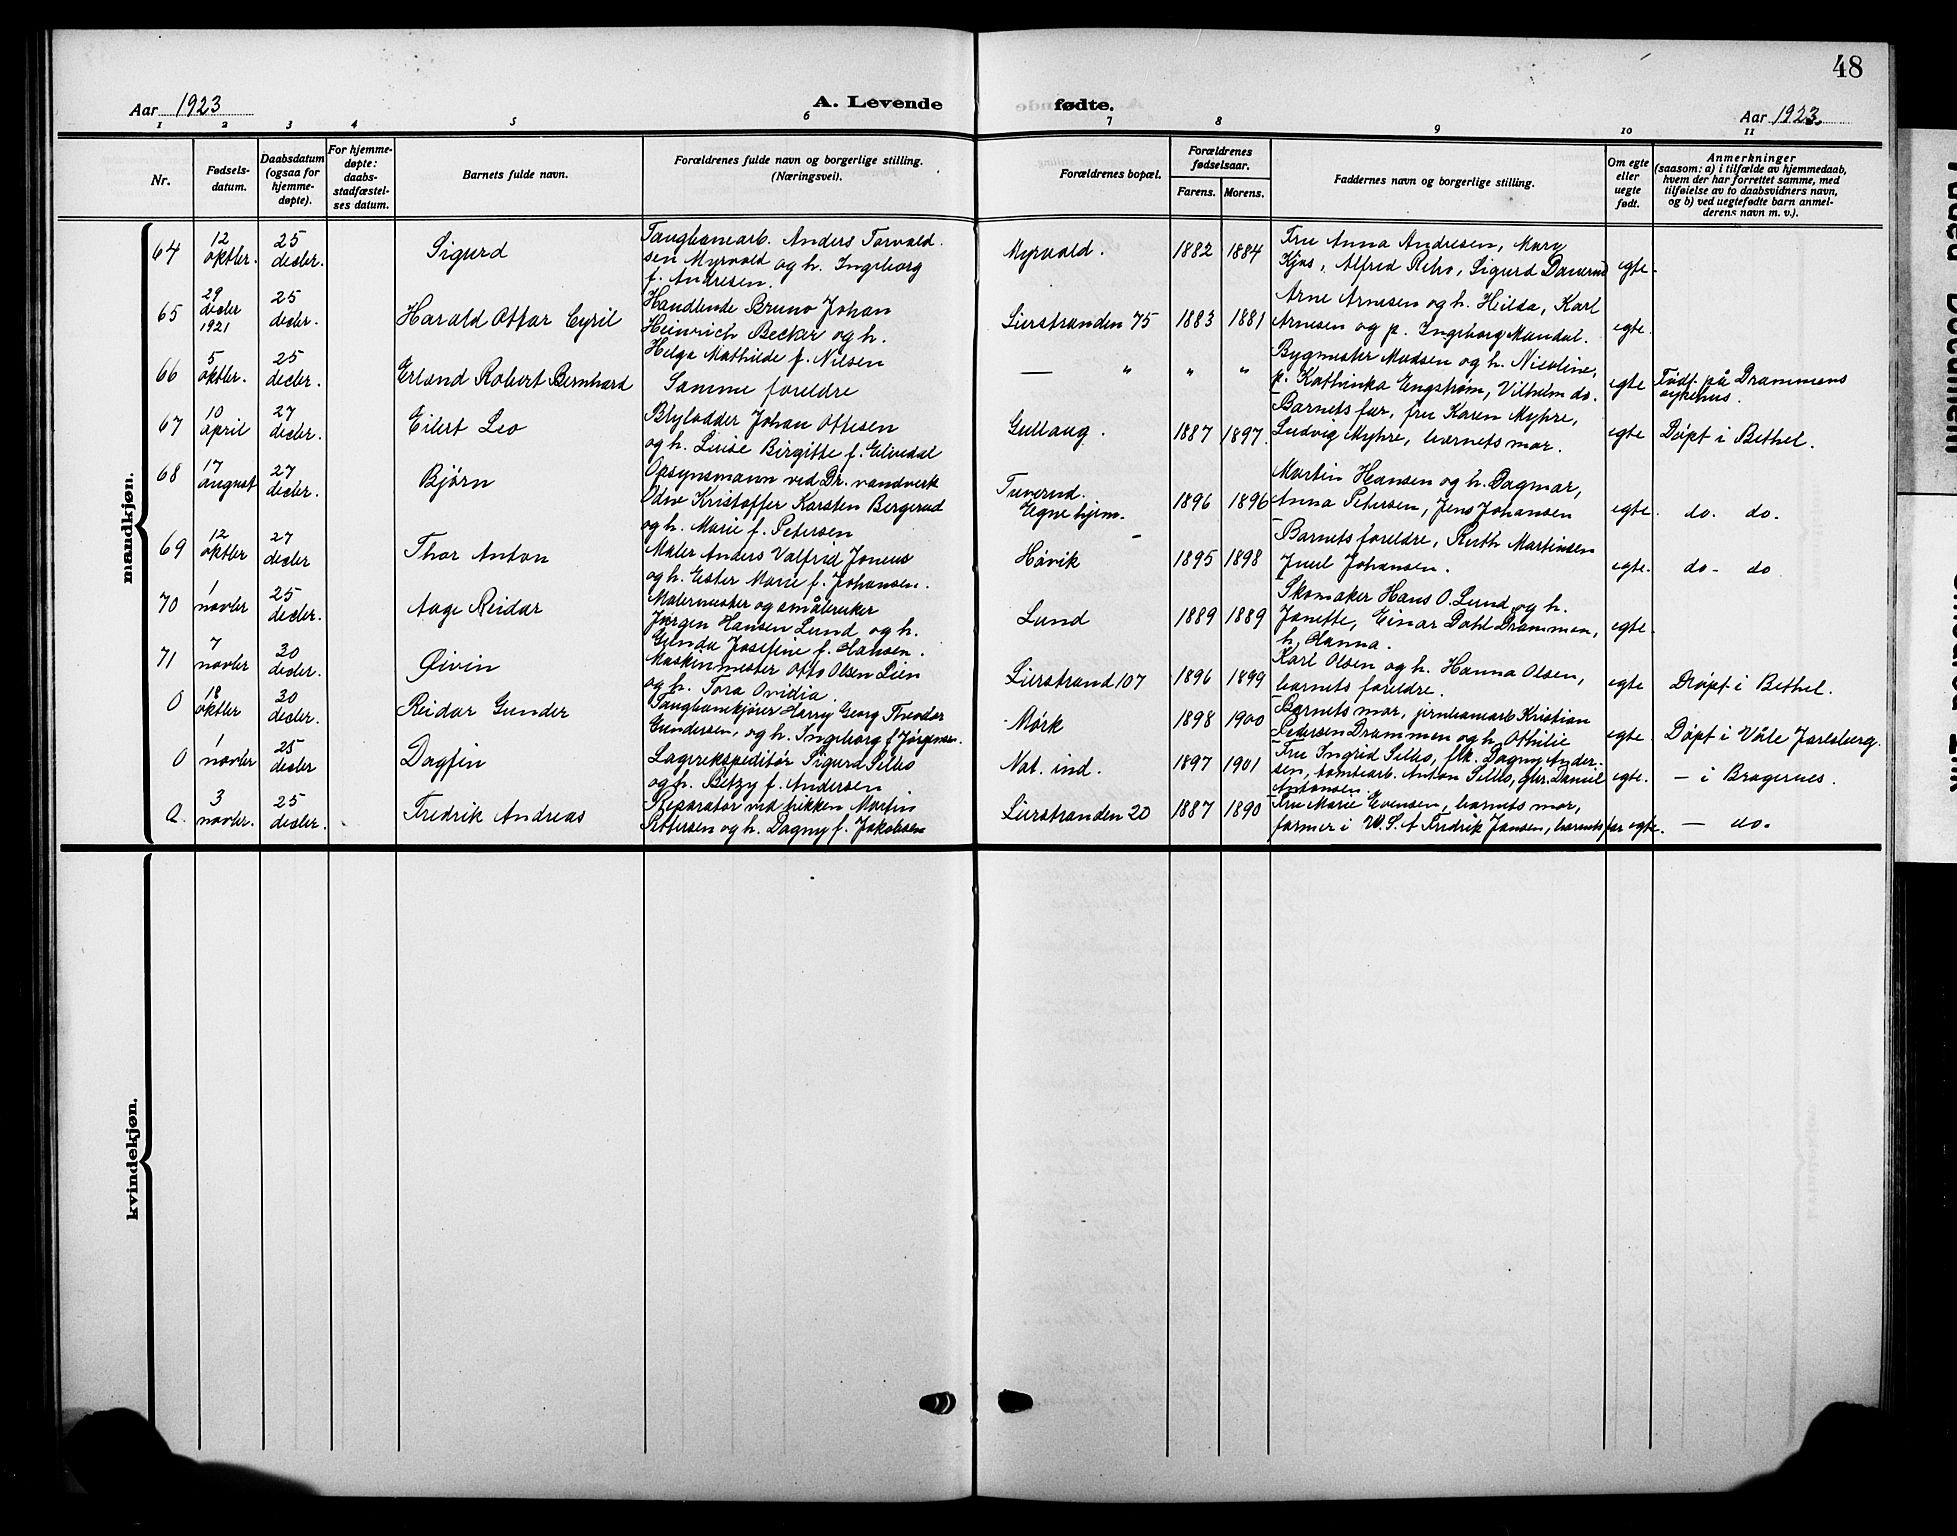 48
Aar 1923
A. Levende fødte.
Aar 1923.
1 2 3 4 5 6 7 8 9 10 11
Nr.
Fødsels-
datum.
Daabsdatum
(ogsaa for
hjemme-
døpte).
For hjemme-
døpte:
daabs-
stadfæstel-
ses datum.
Barnets fulde navn.
Forældrenes fulde navn og borgerlige stilling.
(Næringsvei).
Forældrenes bopæl.
Forældrenes
fødselsaar.
Farens. Morens.
Faddernes navn og borgerlige stilling.
Om egte
eller
uegte
født.
Anmerkninger
(saasom: a) i tilfælde av hjemmedaab,
hvem der har forrettet samme, med
tilføielse av to daabsvidners navn,
og b) ved uegtefødte barn anmel-
derens navn m. v.).
mandkjøn.
64
12
oktbr.
25
decbr.
Sigurd
Taugbanearb. Anders Torvald-
sen Myrvold og h. Ingeborg
f. Andresen.
Myrvold.
1882 1884
Fru Anna Andresen, Mary
Kjøs, Alfred Rebo, Sigurd
egte.
65
29
decbr
1921
25
decbr.
Harald Ottar Cyril
Handlende Bruno Johan
Heinrich Becker og h.
Helga Mathilde f. Nilsen
Lierstranden 75
1883 1881
Arne Arnesen og h. Hilda, Karl
Arnesen og p. Ingeborg Mandal.
egte.
66
5
oktbr.
25
decbr.
Erland Robert Bernhard
Samme foreldre
— " " "
Bygmester Madsen og h. Nicoline,
p. Kathinka Engstrøm, Vilhelm do.
egte
Født på Drammens
sykehus.
67
10
april
27
decbr.
Eilert Leo
Blylodder Johan Ottesen
og h. Luise Birgitte f.
Gullaug.
1887 1897.
Barnets far, fru Karen Myhre,
Ludvig Myhre, barnets mor.
egte
Døpt i Bethel.
68
17
august
27
decbr.
Bjørn
Opsynsmann ved Dr. vandverk
Odne Kristoffer Karsten Bergerud
og h. Marie f. Petersen
Tuverud.
Egne hjem.
1896 1896
Martin Hansen og h. Dagmar,
Anna Petersen, Jens Johansen
egte.
do. do.
69
12
oktbr
27
decbr
Thor Anton
Maler Anders Valfrid Joneus
og h. Ester Marie f. Johansen.
Høvik
1895 1898
Barnets foreldre, Ruth Martinsen
Juul Johansen.
egte.
do- do
70
1
novbr
25
decbr.
Aage Reidar
Malermester og småbruker
Jørgen Hansen Lund og h.
Gunda Josefine f. Hansen.
Lund
1889 1889
Skomaker Hans O. Lund og h.
Janette, Einar Dahl Drammen,
h. Hanna.
egte.
71
7
novbr.
30
decbr.
Øivin
Maskinmester Otto Olsen Lien
og h. Tora Ovidia.
Lierstrand 107
1896 1899
Karl Olsen og h. Hanna Olsen,
barnets foreldre.
egte
Døpt i Bethel.
0
18
oktbr
30
decbr.
Reidar Gunder
Taugbanekjører Harry Georg Theodor
Gundersen, og h. Ingeborg f. Jørgensen.
Mørk
1898 1900
Barnets mor, jernbanearb Kristian
Pedersen Drammen og h. Othilie
egte
Døpt i Våle Jarlsberg.
0
1
novbr
25
decbr
Dagfin
Lagerekspeditør Sigurd Sillbo
og h. Betzy f. Andersen
Nat. ind.
1897 1901
Fru Ingrid Sillbo, frk. Dagny Ander-
sen, tomtearb. Anton Sillbo, Daniel
Antonsen.
egte.
— i Bragernes.
0.
3
novbr.
25
decbr.
Fredrik Andreas
Reparatør ved trikken Martin
Pettersen og h. Dagny f. Jakobsen
Lierstranden 20
1887 1890
Fru Marie Evensen, barnets mor,
farmer i U.S.A Fredrik Jansen, barnets far
egte.
— do.
kvindekjøn.